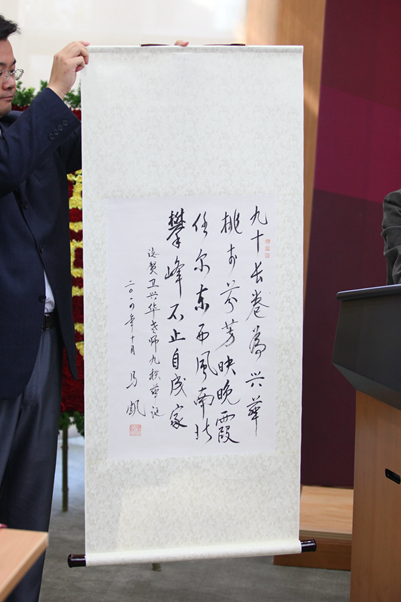 九十长卷为兴华
桃李芬芳映晚霞
任尔东西风南北
攀峰不止自成家
恭贺卫兴华老师九秩华诞
二〇一四年十月 马凯